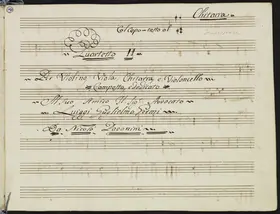 Chitarra
Col Capo-tasto al
Quartetto 11
Per Violino, Viola, Chitarra, e Violoncello
Composto, e dedicato
Al Suo Amico Il Sig. Avvocato
Luigi Guglielmo Germi
Da Nicolò Paganini